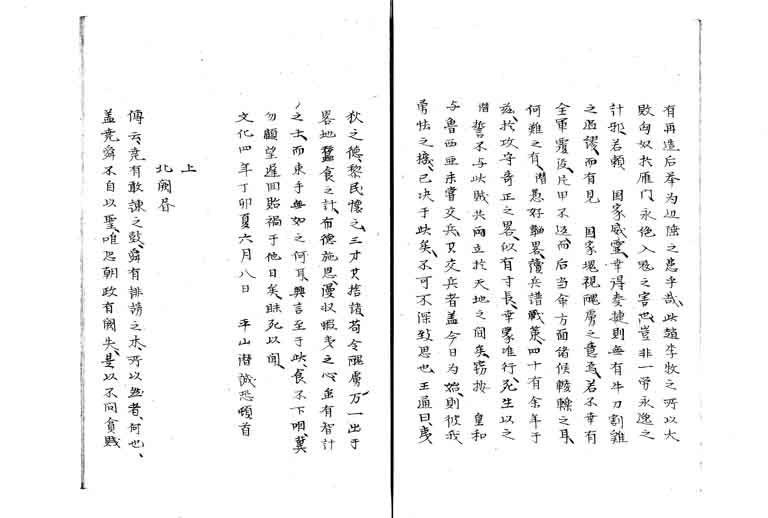 有再造后举为辺陲之患乎哉、此趙李牧之所以大
敗匈奴于雁门、永绝入寇之害也、豈非一労永逸之
計邪、若頼　国家威霊、幸得奏捷、則無有牛刀割雞
之恧謬、而有見　国家塊視醜虜之意焉、若不幸有
全軍覆没、片甲不返、而后当命方面諸侯轅轢之耳、
何難之有、潜愚好韜畧、讀兵譜戦策、四十有余年于
茲、於攻守奇正之畧、似有寸長、幸蒙准行、死生以之
潜誓不与此賊共両立於天地之间矣、窃按　皇和
与魯西亜未嘗交兵、其交兵者蓋今日为始、則彼我
勇怯之機、已决于此矣、不可不深致思也、王通曰、夷
狄之德、黎民懷之、三才其捨諸、苟令醜虜万一出于
畧地蠶食之計、布徳施恩、漫収暇夷之心、虽有智計
之士、而束手無如之何耳、興言至于此、食不下咽、冀
勿顧望遅回、貽禍于他日矣、昧死以闻、
文化四年丁卯夏六月八日　平山潜誠恐頓首
上
北闕下
傳云、堯有敢諫之鼓、舜有誹謗之木、所以然者、何也、
盖堯舜不自以聖、唯恐朝政有闕失、是以不问貧賤